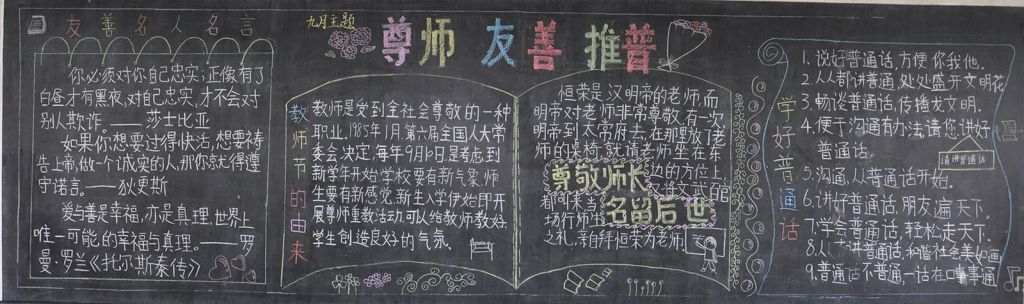 九月主题
尊师 友善 推普
友善名人名言
你必须对你自己忠实;正像有了
白昼才有黑夜,对自己忠实,才不会对
别人欺诈。——莎士比亚
如果你想要过得快活,想要祷
告上帝,做一个诚实的人,那你就得遵
守诺言。——狄更斯
爱与善是幸福,亦是真理,世界上
唯一可能的幸福与真理。——罗
曼·罗兰《托尔斯泰传》
教师节的由来
教师是受到全社会尊敬的一种
职业,1985年1月第六届全国人大常
委会决定,每年9月10日是考虑到
新学年开始,学校要有新气象,师
生要有新感觉,新生入学伊始,即开
展尊师重教活动,可以给教师教好、
学生创造良好的气氛。
恒荣是汉明帝的老师,而
明帝对老师非常尊敬,有一次
明帝到太常府去,在那里放了老
师的桌椅,就请老师坐在东
边的方位上,
尊敬师长
又将文武百官
都叫来当
名留后世
场行师
之礼,亲自拜恒荣为老师
学好普通话
1.说好普通话,方便你我他。
2.人人都讲普通,处处盛开文明花
3.畅谈普通话,传播龙文明。
4.便于沟通有办法,请您讲好
普通话。
请讲普通话
5.沟通,从普通话开始。
6.讲好普通话,朋友遍天下。
7.学会普通话,轻松走天下。
8.人人讲普通话,和谐社会美如画
9.普通话不普通,一话在口事事通